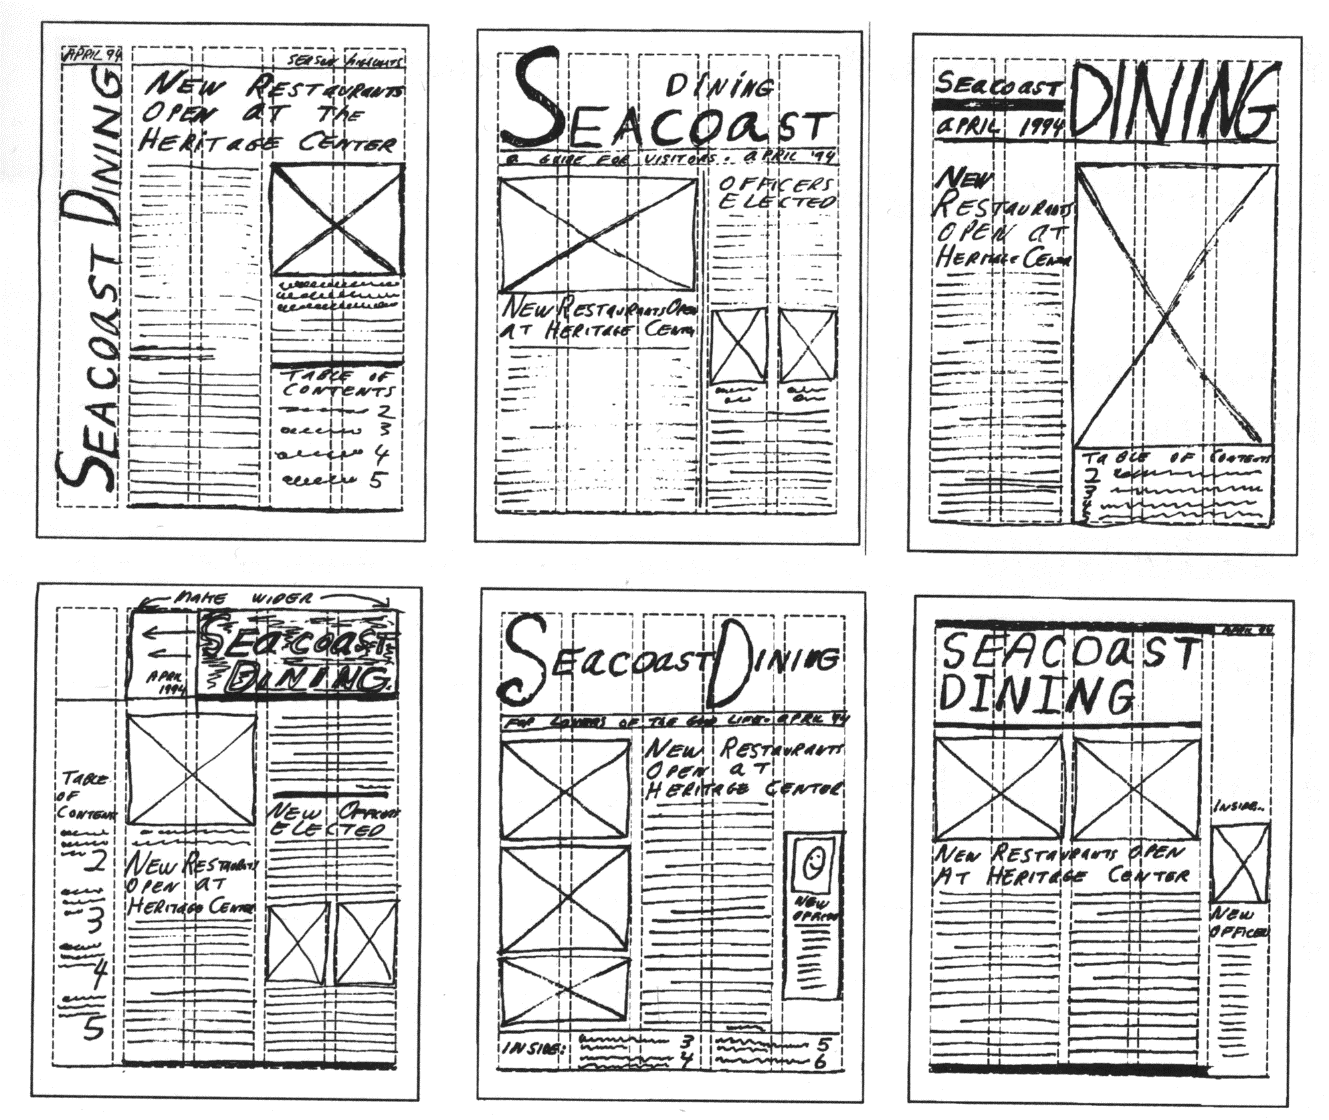 APRIL 94
SEASON HIGHLIGHTS
SEACOAST DINING
NEW RESTAURANTS
OPEN AT THE
HERITAGE CENTER
TABLE OF
CONTENTS
2
3
4
5
DINING
SEACOAST
A GUIDE FOR VISITORS. APRIL '94
OFFICERS
ELECTED
NEW RESTAURANTS OPEN
AT HERITAGE CENTER
SEACOAST
APRIL 1994
DINING
NEW
RESTAURANTS
OPEN AT
HERITAGE CENTER
TABLE OF CONTENTS
2
3
MAKE WIDER
SEACOAST
DINING
APRIL
1994
TABLE
OF
CONTENTS
2
3
4
5
NEW RESTAURANTS
OPEN AT
HERITAGE CENTER
NEW OFFICERS
ELECTED
SEACOAST DINING
FOR LOVERS OF THE GOOD LIFE. APRIL 94
NEW RESTAURANTS
OPEN AT
HERITAGE CENTER
NEW
INSIDE:
3
4
5
6
APRIL 94
SEACOAST
DINING
NEW RESTAURANTS OPEN
AT HERITAGE CENTER
INSIDE..
NEW
OFFICER